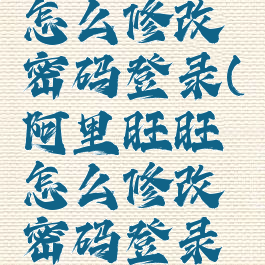 怎么修改
密码登录(
阿里旺旺
怎么修改
密码登录